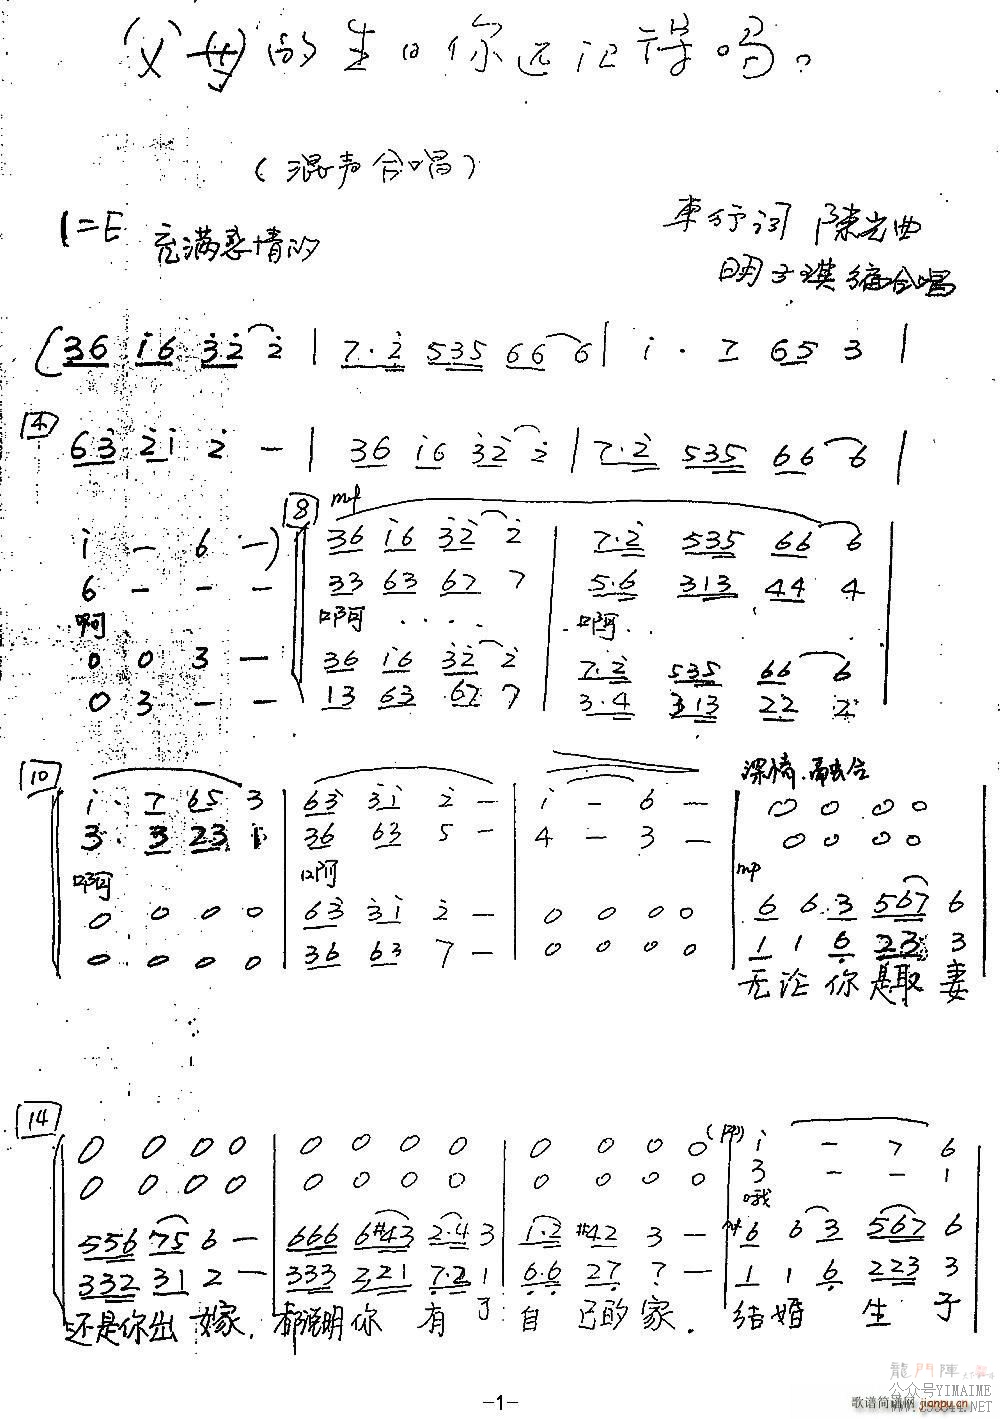 (父母)的生日你还记得吗。
(混声合唱)
1=E 充满感情的
车行词 陈光曲
明子琪编合唱
(36 i6 32 2 | 7·2 535 66 6 | i · 7 65 3 |
4
63 2i 2 - | 36 i6 32 2 | 7·2 535 66 6 |
8 mf
i - 6 -) 36 i6 32 2 | 7·2 535 66 6
6 - - - 33 63 67 7 | 5·6 313 44 4
啊 啊 · · · · 啊 · ·
0 0 3 - 36 i6 32 2 | 7·2 535 66 6
0 3 - - 13 63 67 7 | 3·4 313 22 2
10 深情.融合
i · 7 65 3 | 63 3i 2 - | i - 6 - | 0 0 0 0
3 · 3 23 1 | 36 63 5 - | 4 - 3 - | 0 0 0 0
啊 啊 mp
0 0 0 0 | 63 3i 2 - | 0 0 0 0 | 6 6 3 567 6
0 0 0 0 | 36 63 7 - | 0 0 0 0 | 1 1 6 23 3
无论你是取妻
14
0 0 0 0 | 0 0 0 0 | 0 0 0 0 | i - 7 6
0 0 0 0 | 0 0 0 0 | 0 0 0 0 | 3 - - 1
哦
556 75 6 - | 666 6#43 2·4 3 | 1·2 #42 3 - | 6 6 3 567 6
332 31 2 - | 333 221 7·2 1 | 6·6 27 7 - | 1 1 6 223 3
还是你出嫁. 都说明你有了自己的家. 结婚生子
龍門陣
公众号YIMAIME
歌谱简谱网 jianpu.cn
-1-